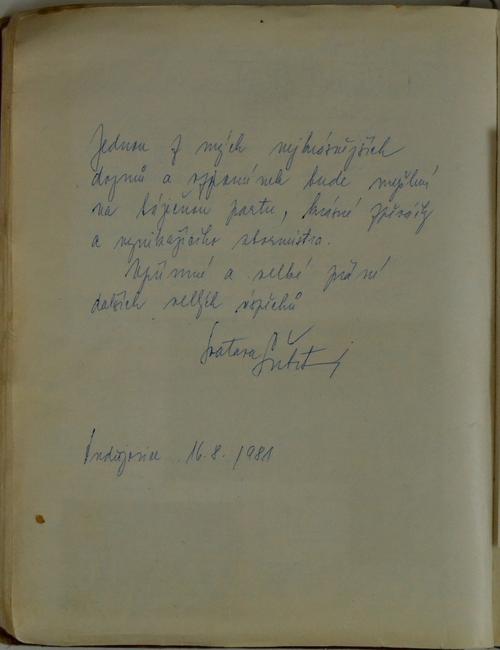 Jednou z mých nejkrásnějších
dojmů a vzpomínek bude myšlení
na báječnou partu, krásné zpěváky
a vynikajícího sbormistra.
Upřímné a velké přání
dalších velkých úspěchů
16.8. 1981